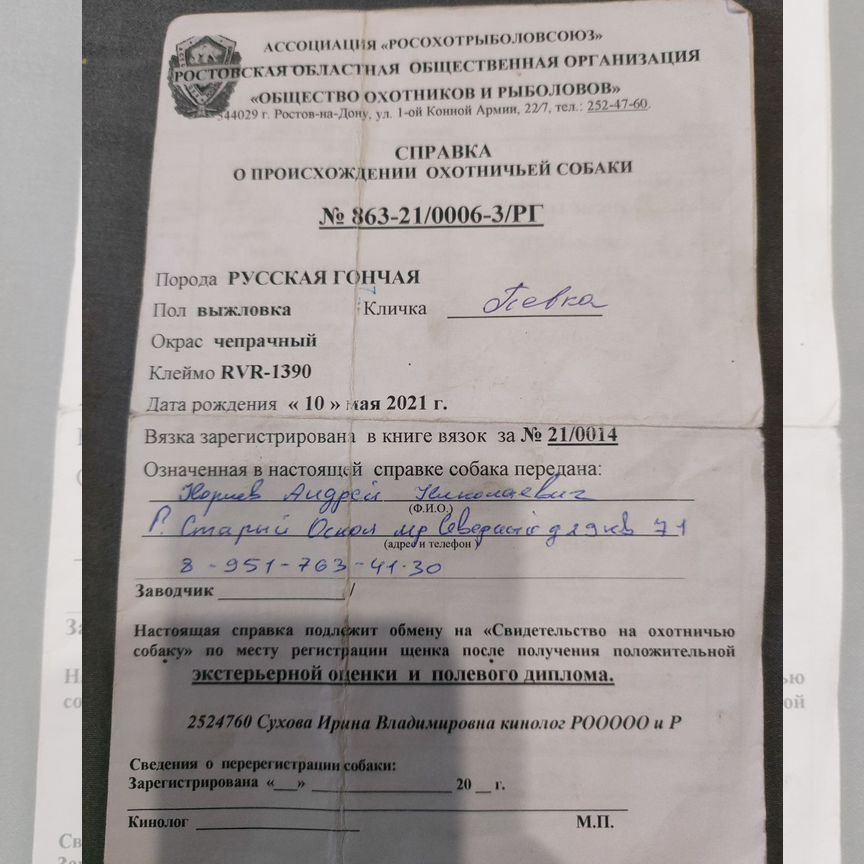 АССОЦИАЦИЯ «РОСОХОТРЫБОЛОВСОЮЗ»
РОСТОВСКАЯ ОБЛАСТНАЯ ОБЩЕСТВЕННАЯ ОРГАНИЗАЦИЯ
«ОБЩЕСТВО ОХОТНИКОВ И РЫБОЛОВОВ»
344029 г. Ростов-на-Дону, ул. 1-ой Конной Армии, 22/7, тел.: 252-47-60.
СПРАВКА
О ПРОИСХОЖДЕНИИ ОХОТНИЧЬЕЙ СОБАКИ
№ 863-21/0006-3/РГ
Порода РУССКАЯ ГОНЧАЯ
Пол выжловка Кличка Певка
Окрас чепрачный
Клеймо RVR-1390
Дата рождения « 10 » мая 2021 г.
Вязка зарегистрирована в книге вязок за № 21/0014
Означенная в настоящей справке собака передана:
Андрей Николаевич
(Ф.И.О.)
Г. Старый Оскол 71
(адрес и телефон )
8-951-763-41-30
Заводчик ____________ /
Настоящая справка подлежит обмену на «Свидетельство на охотничью
собаку» по месту регистрации щенка после получения положительной
экстерьерной оценки и полевого диплома.
2524760 Сухова Ирина Владимировна кинолог РОООООО и Р
Сведения о перерегистрации собаки:
Зарегистрирована «___» ________________ 20 __ г.
Кинолог ________________ М.П.